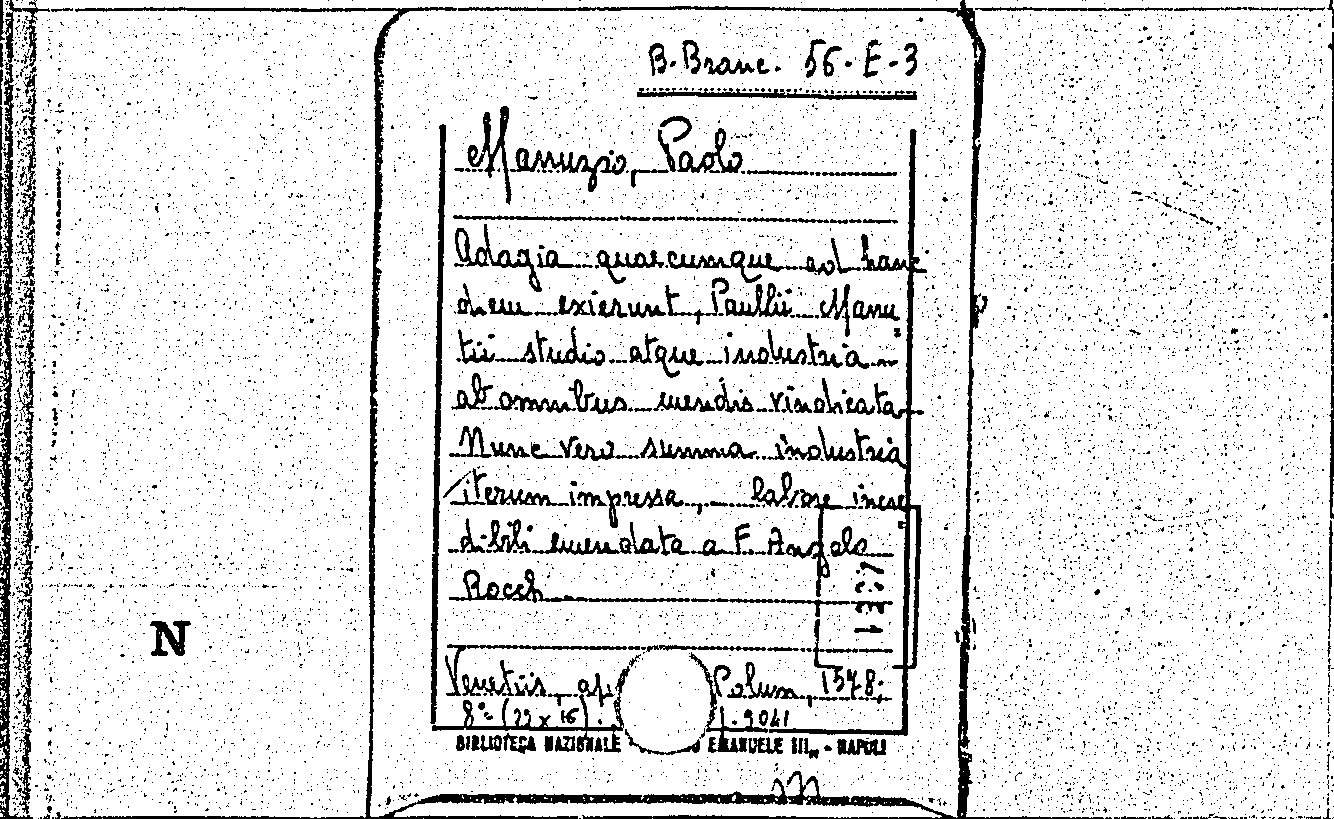 B. Branc. 56-E-3
Manuzio, Paolo
Adagia quaecumque ad hanc
diem exierunt, Paulli Manu
tii studio atque industria
ab omnibus mendis vindicata
Nunc vero summa industria
iterum impressa, labore incre
dibili emendata a F. Angelo
Rocch
1231
N
Venetiis, ap Polum, 1578;
8° (22 x 16). 9041
BIBLIOTECA NAZIONALE EMANUELE III„ - NAPOLI